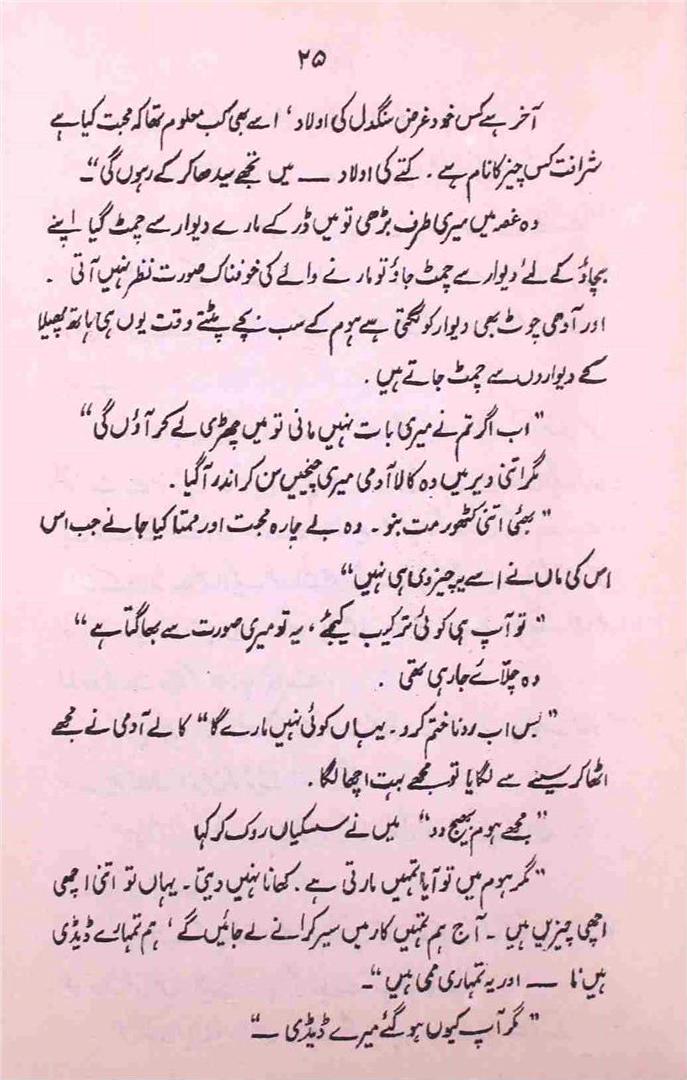 ۲۵
آخر ہے کس خود غرض سنگدل کی اولاد ، اسے بھی کب معلوم تھا کہ محبت کیا ہے
شرافت کس چیز کا نام ہے ۔ کتے کی اولاد ــــ میں تجھے سیدھا کر کے رہوں گی"۔
وہ غصہ میں میری طرف بڑھی تو میں ڈر کے مارے دیوار سے چمٹ گیا اپنے
بچاؤ کے لئے دیوار سے چمٹ جاؤ تو مارنے والے کی خوفناک صورت نظر نہیں آتی ۔
اور آدھی چوٹ بھی دیوار کو لگتی ہے ہوم کے سب بچے پٹتے وقت یوں ہی ہاتھ پھیلا
کے دیواروں سے چمٹ جاتے ہیں ۔
"اب اگر تم نے میری بات نہیں مانی تو میں چھڑی لے کر آؤں گی"
مگر اتنی دیر میں وہ کالا آدمی میری چیخیں سن کر اندر آگیا ۔
"بھئی اتنی کٹھور مت بنو ۔ وہ بے چارہ محبت اور ممتا کیا جانے جب اس
اس کی ماں نے اسے یہ چیز دی ہی نہیں"
"تو آپ ہی کوئی ترکیب کیجئے ، یہ تو میری صورت سے بھاگتا ہے"
وہ چلائے جا رہی تھی ۔
"بس اب رونا ختم کرو ۔ یہاں کوئی نہیں مارے گا" کالے آدمی نے مجھے
اٹھا کر سینے سے لگایا تو مجھے بہت اچھا لگا ۔
"مجھے ہوم بھیج دو" میں نے سسکیاں روک کر کہا
"مگر ہوم میں تو آیا تمہیں مارتی ہے ۔ کھانا نہیں دیتی ۔ یہاں تو اتنی اچھی
اچھی چیزیں ہیں ۔ آج ہم تمہیں کار میں سیر کرانے لے جائیں گے ، ہم تمہارے ڈیڈی
ہیں نا ــــ اور یہ تمہاری ممی ہیں"۔
"مگر آپ کیوں ہو گئے میرے ڈیڈی ــ"